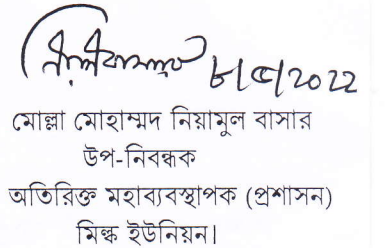 ৮/৫/2022
মোল্লা মোহাম্মদ নিয়ামুল বাসার
উপ-নিবন্ধক
অতিরিক্ত মহাব্যবস্থাপক (প্রশাসন)
মিল্ক ইউনিয়ন।